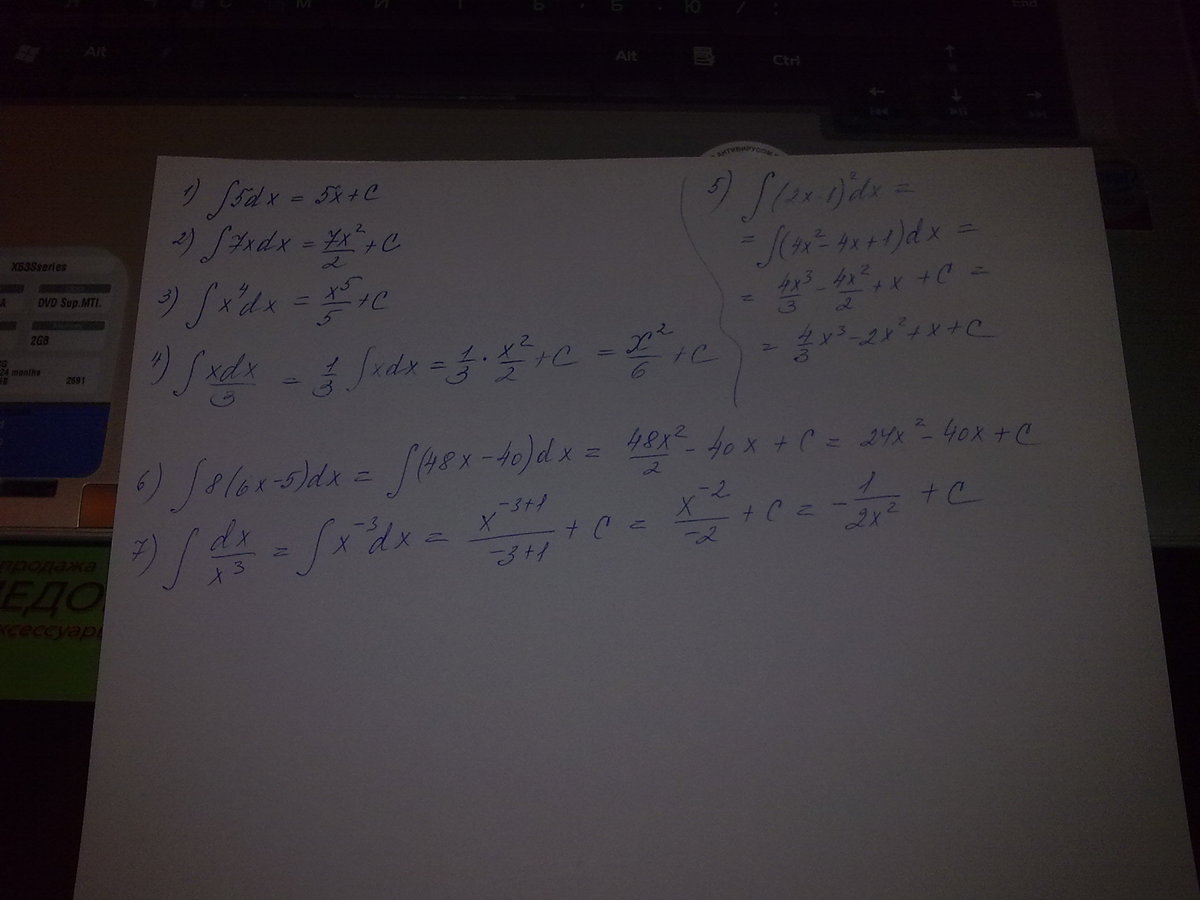 Alt
Alt
Ctrl
End
АНТИВИРУСОМ
X53Sseries
DVD Sup.MTI.
2GB
24 months
2691
продажа
1) ∫5dx = 5x+C
2) ∫7xdx = 7x²/2 + C
3) ∫x⁴dx = x⁵/5 + C
4) ∫xdx/3 = 1/3 ∫xdx = 1/3 · x²/2 + C = x²/6 + C
5) ∫(2x-1)²dx =
= ∫(4x²-4x+1)dx =
= 4x³/3 - 4x²/2 + x + C =
= 4/3 x³ - 2x² + x + C
6) ∫8(6x-5)dx = ∫(48x-40)dx = 48x²/2 - 40x + C = 24x² - 40x + C
7) ∫dx/x³ = ∫x⁻³dx = x⁻³⁺¹/-3+1 + C = x⁻²/-2 + C = -1/2x² + C